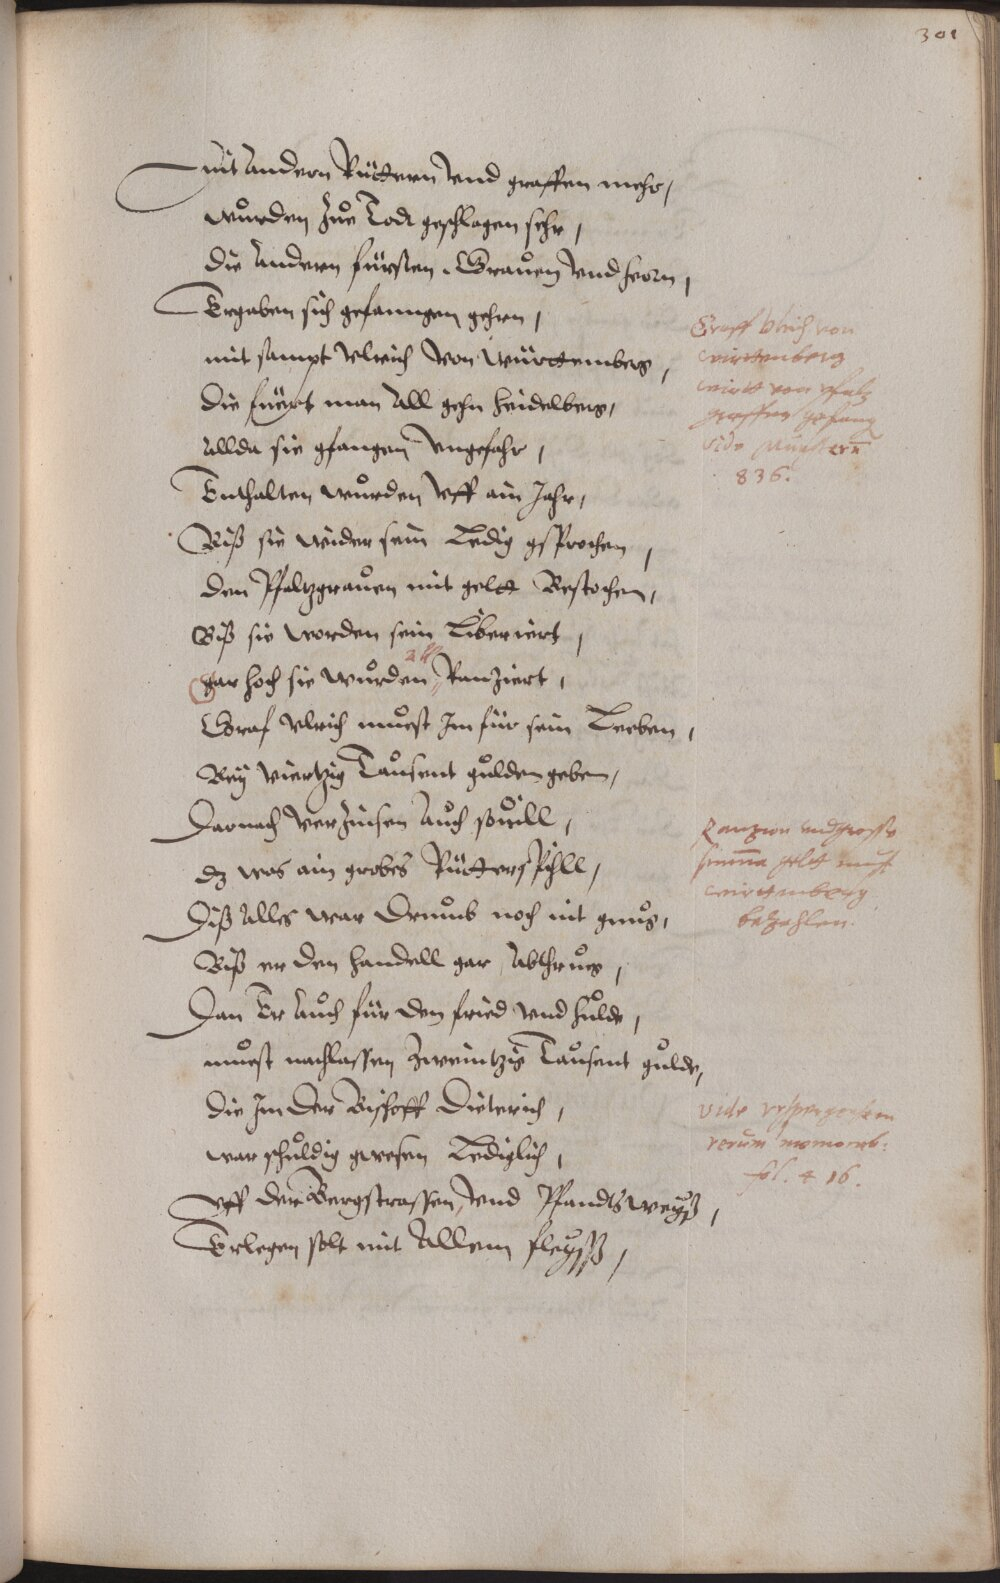 301
Mit Andern Rüttern Vnd graffen mehr,
wurden Zue Todt geschlagen sehr,
die Andern fürsten, Grauen Vnd herrn,
Ergaben sich gefanngen gehrn,
mit sampt Vlrich Von Württemberg,
die fuert man All gehn heidelberg,
Allda sie gfangen Vngefahr,
Enthalten wurden Vff ain Jahr,
Biß sie wider sein Ledig gsprochen,
den Pfaltzgrauen mit geltt Bestochen,
Biß sie worden sein Liberiert,
gar hoch sie wurden all Ranziert,
Graf Vlrich muest Im für sein Leeben,
Bey Viertzig Tausent gulden geben,
Darnach Verzinsen Auch souill,
dz was ain grobes Rütterspihll,
Diß Alles war drumb noch nit gnug,
Biß er den handell gar Abthrueg,
Dan Er Auch für den fried Vnd hulde,
muest nachlassen Zweintzig Tausent gulde,
die Im der Bischoff Dieterich,
war schuldig gwesen Lediglich,
Vff der Bergstrassen, Vnd Pfandtsweyß,
Erlegen solt mit Allem fleyß,
Graff Vlrich von
wirttenberg
wirtt von pfaltz
graffen gefang
vide Munsterū
836.
Ranzion und grosse
summa geltt must
wirttenberg
bezahlen.
vide
rerum memorab:
fol. 416.